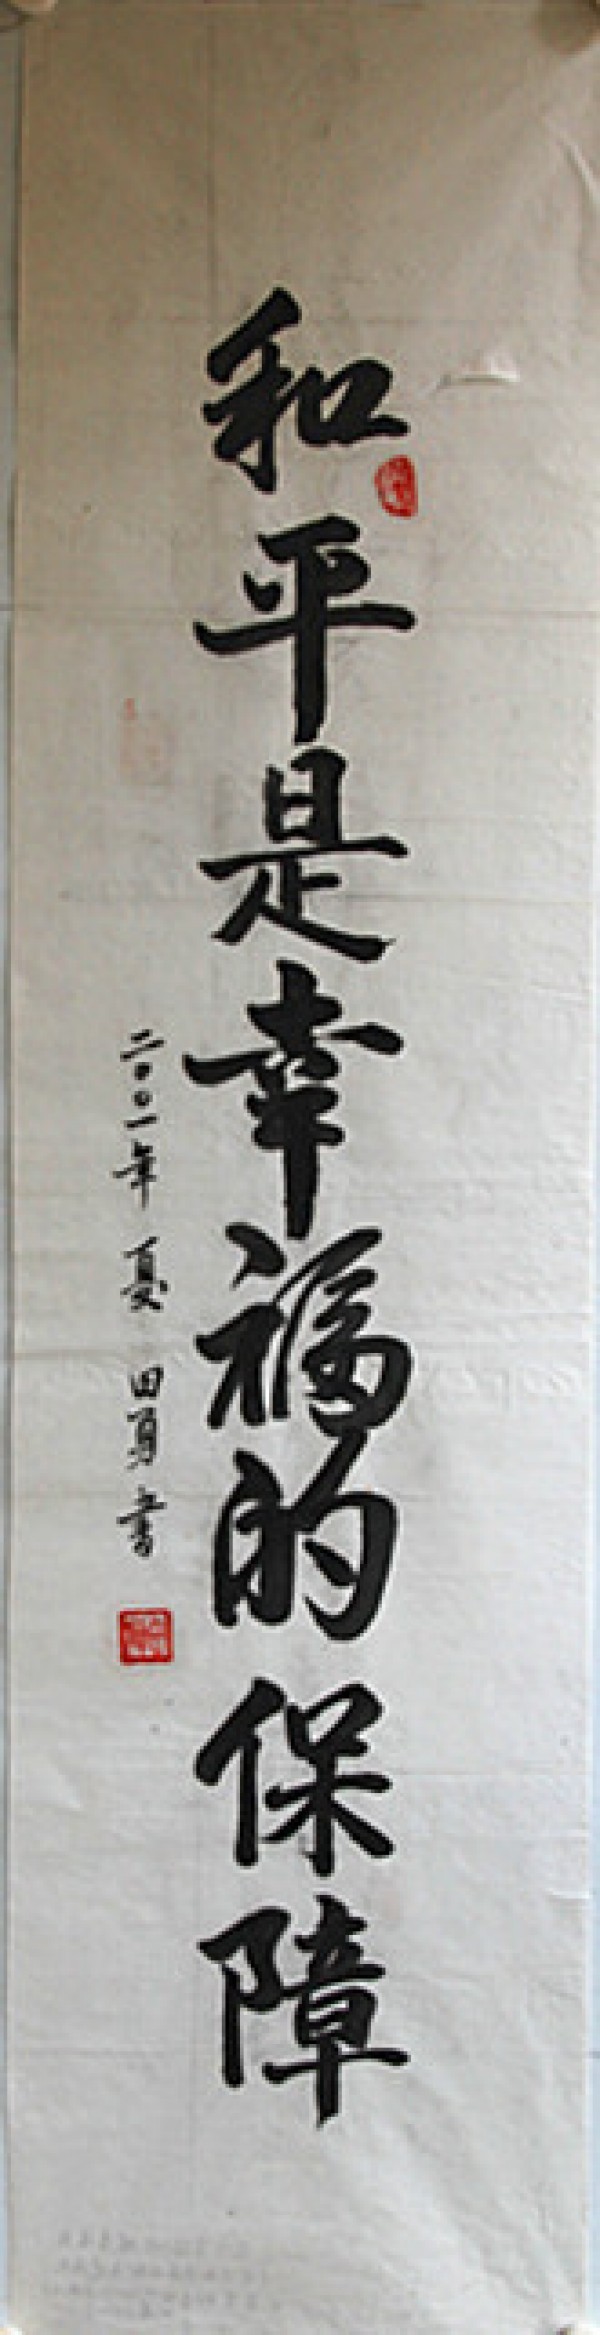 和平是幸福的保障
二〇〇一年 夏 田勇書